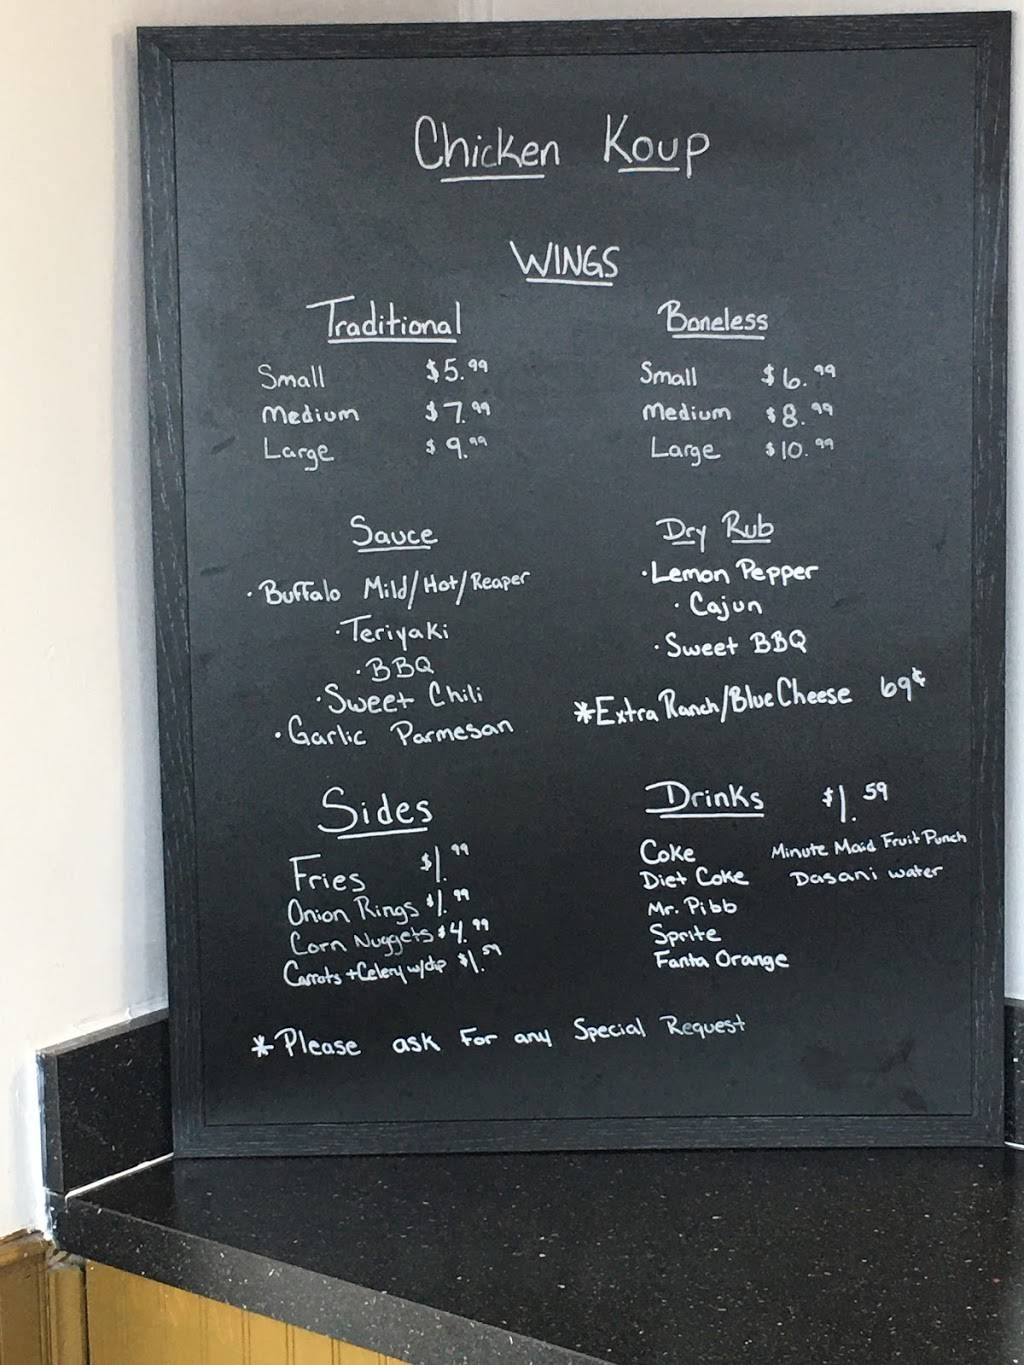 Chicken Koup
WINGS
Traditional
Small $5.99
Medium $7.99
Large $9.99
Boneless
Small $6.99
Medium $8.99
Large $10.99
Sauce
·Buffalo Mild/Hot/Reaper
·Teriyaki
·BBQ
·Sweet Chili
·Garlic Parmesan
Dry Rub
·Lemon Pepper
·Cajun
·Sweet BBQ
*Extra Ranch/Blue Cheese 69¢
Sides
Fries $1.99
Onion Rings $1.99
Corn Nuggets $4.99
Carrots + Celery w/dip $1.59
Drinks $1.59
Coke
Diet Coke
Mr. Pibb
Sprite
Fanta Orange
Minute Maid Fruit Punch
Dasani water
*Please ask For any Special Request